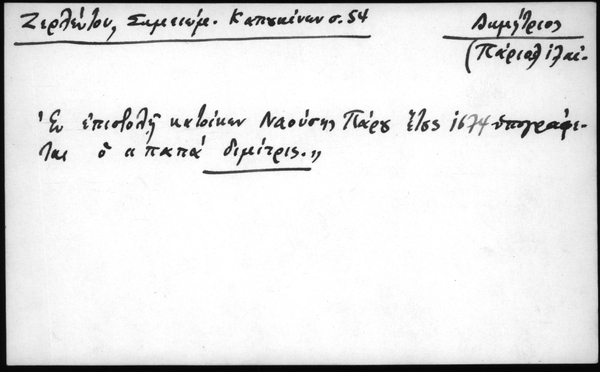 Ζερλέντου, Σημειώμ. Καπουκίνων σ. 54
Δημήτριος
(Πάριος
Ἐν ἐπιστολῇ κατοίκων Ναούσης Πάρου ἔτους 1674 ὑπογράφε-
ται ὁ «παπά διμίτρις.»